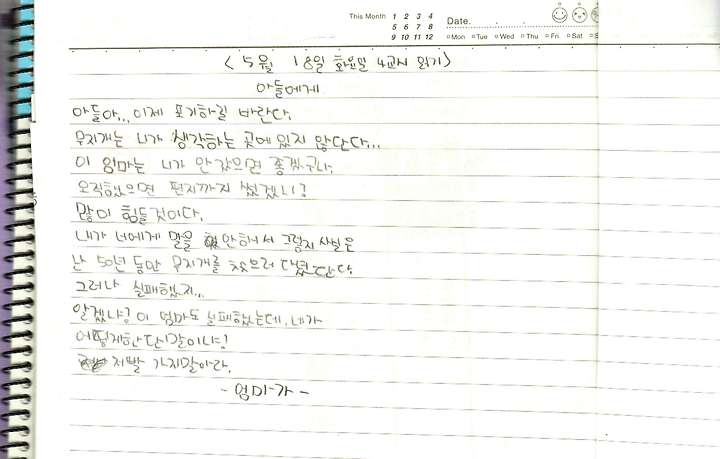 This Month 1 2 3 4 Date.
5 6 7 8
9 10 11 12 Mon Tue Wed Thu Fri Sat S
<5월 18일 화요일 4교시 읽기>
아들에게
아들아... 이제 포기하길 바란다.
무지개는 니가 생각하는 곳에 있지 않단다...
이 엄마는 니가 안 갔으면 좋겠구나.
오직했으면 편지까지 썼겠니?
많이 힘들것이다.
내가 너에게 말을 안해서 그렇지 사실은
난 50년 동안 무지개를 찾으러 다녔단다.
그러나 실패했지...
알겠냐? 이 엄마도 실패했는데, 네가
어떻게한단 말이냐!
제발 가지말아라.
- 엄마가 -